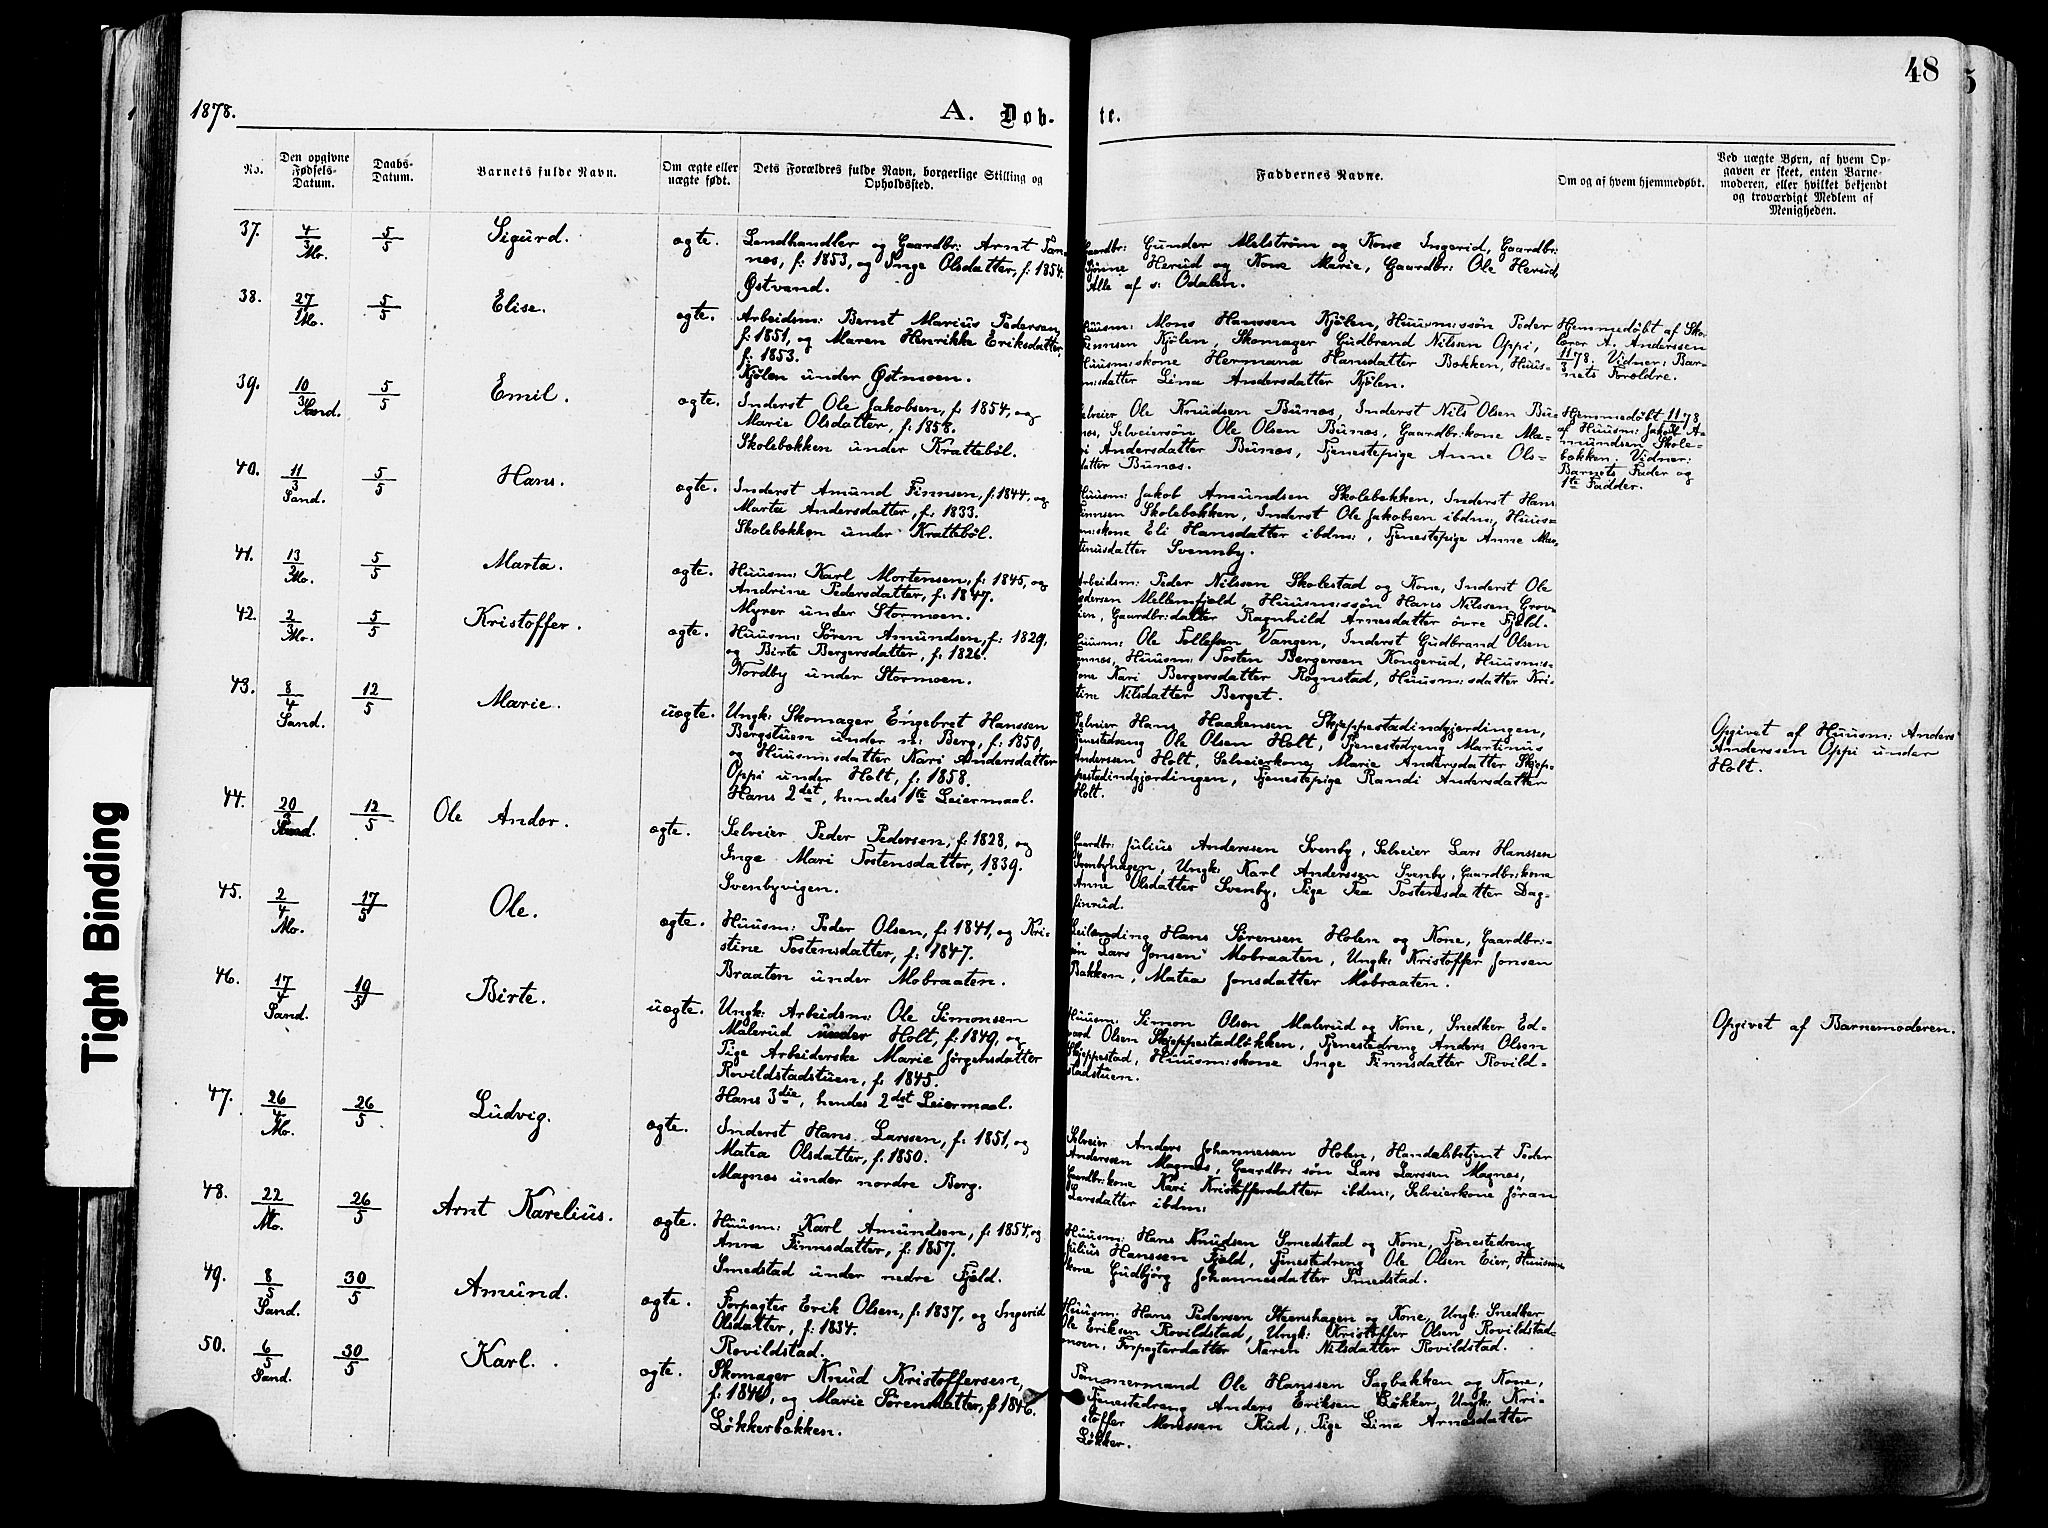 48
1878.
A. Døb-
te.
No.
Den opgivne
Fødsels-
Datum.
Daabs-
Datum.
Barnets fulde Navn.
Om ægte eller
uægte født.
Dets Forældres fulde Navn, borgerlige Stilling og
Opholdssted.
Faddernes Navne.
Om og af hvem hjemmedøbt.
Ved uægte Børn, af hvem Op-
gaven er skeet, enten Barne-
moderen, eller hvilket bekjendt
og troværdigt Medlem af
Menigheden.
37.
4/3 Mo.
5/5
Sigurd.
ægte.
Landhandler og Gaardbr: Arnt Tan-
næs, f: 1853, og Inge Olsdatter, f: 1854.
Østvand.
Gaardbr: Gunder Melstrøm og Kone Ingerid, Gaardbr:
Herud og Kone Marie, Gaardbr: Ole Herud,
Alle af s: Odalen.
38.
27/1 Mo.
5/5
Elise.
ægte.
Arbeidsm: Bernt Marius Pedersen,
f: 1851, og Maren Henrikke Eriksdatter,
f: 1853.
Kjølen under Østmoen.
Huusm: Mons Hanssen Kjølen, Huusm:søn Peder
Finnsen Kjølen, Skomager Gudbrand Nilsen Oppi,
Huusm:skone Hermana Hansdatter Bakken, Huus-
m:sdatter Lina Andersdatter Kjølen.
Hjemmedøbt af Sko-
lærer A. Anderssen
11/3 78. Vidner: Bar-
nets Forældre.
39.
10/3 Sand.
5/5
Emil.
ægte.
Inderst Ole Jakobsen, f: 1854, og
Marie Olsdatter, f: 1858.
Skolebakken under Kratteból.
Selveier Ole Knudsen Bunæs, Inderst Nils Olsen Bu-
næs, Selveiersøn Ole Olsen Bunæs, Gaardbr:kone Ma-
ri Andersdatter Bunæs, Tjenestepige Anne Ols-
datter Bunæs.
Hjemmedøbt 11/3 78,
af Huusm: Jakob A-
mundsen Skole-
bakken. Vidner:
Barnets Fader og
1te Fadder.
40.
11/3 Sand.
5/5
Hans.
ægte.
Inderst Amund Finnsen, f: 1844, og
Marte Andersdatter, f: 1833.
Skolebakken under Kratteból.
Huusm: Jakob Amundsen Skolebakken, Inderst Hans
Finnsen Skolebakken, Inderst Ole Jakobsen ibdm:, Huus-
m:skone Eli Hansdatter ibdm:, Tjenestepige Anne Mar-
tinusdatter Svennby.
41.
13/2 Mo.
5/5
Marta.
ægte.
Huusm: Karl Mortensen, f: 1845, og
Andrine Pedersdatter, f: 1847.
Myrer under Stormoen.
Arbeidsm: Peder Nilssen Skolestad og Kone, Inderst Ole
Pedersen Mellemfjeld, Huusm:ssøn Hans Nilssen Grov-
eien, Gaardbr:datter Ragnhild Arnesdatter øvre Fjeld.
42.
2/3 Mo.
5/5
Kristoffer.
ægte.
Huusm: Søren Amundsen, f: 1829,
og Birte Bergersdatter, f: 1826.
Nordby under Stormoen.
Huusm: Ole Tollefsen Vangen, Inderst Gudbrand Olsen
Huusm: Tosten Bergersen Kongerud, Huusm:s-
kone Kari Bergersdatter Rognstad, Huusm:sdatter Kri-
stine Nilsdatter Berget.
43.
8/4 Sand.
12/5
Marie.
uægte.
Ungk: Skomager Engebret Hanssen
Bergstuen under n: Berg, f: 1850,
og Huusm:sdatter Kari Andersdatter
Oppi under Holt, f: 1858.
Hans 2det, hendes 1te Leiermaal.
Selveier Hans Haakensen Skjeppestadindgjordingen,
Tjenestedreng Ole Olsen Holt, Tjenestedreng Martinus
Andersen Holt, Selveierkone Marie Andersdatter Skjep-
pestadindgjordingen, Tjenestepige Randi Andersdatter
Holt.
Opgivet af Huusm: Anders
Anderssen Oppi under
Holt.
44.
20/3 Sand.
12/5
Ole Andor.
ægte.
Selveier Peder Pedersen, f: 1828, og
Inge Mari Tostensdatter, 1839.
Svenbyvigen.
Gaardbr: Julius Anderssen Svenby, Selveier Lars Hanssen
Svenbyhagen, Ungk: Karl Anderssen Svenby, Gaardbr:kone
Anne Olsdatter Svenby, Pige Tea Tostensdatter Dag-
finrud.
45.
2/4 Mo.
17/5
Ole.
ægte.
Huusm: Peder Olsen, f: 1841, og Kri-
stine Tostensdatter, f: 1847.
Braaten under Mobraaten.
Leilænding Hans Sørensen Holen og Kone, Gaardbr:-
søn Lars Jonsen Mobraaten, Ungk: Kristoffer Jonsen
Bakken, Matea Jonsdatter Mobraaten.
46.
17/4 Sand.
19/5
Birte.
uægte.
Ungk: Arbeidsm: Ole Simonsen
Malerud under Holt, f: 1849, og
Pige Arbeiderske Marie Jørgensdatter
Rovildstadstuen, f: 1845.
Hans 3die, hendes 2det Leiermaal.
Huusm: Simon Olsen Malerud og Kone, Snedker Ed-
vard Olsen Skjeppestadløkken, Tjenestedreng Anders Olsen
Skjeppestad, Huusm:skone Inge Finnsdatter Rovild-
stadstuen.
Opgivet af Barnemoderen.
47.
26/4 Mo.
26/5
Ludvig.
ægte.
Inderst Hans Larssen, f: 1851, og
Matea Olsdatter, f: 1850.
Magnes under nordre Berg.
Selveier Anders Johannesen Holen, Handelsbetjent Peder
Anderssen Magnes, Gaardbr: søn Lars Larssen Magnes,
Gaardbr:kone Kari Kristoffersdatter ibdm:, Selveierkone Jøran
Larsdatter ibdm:
48.
22/1 Mo.
26/5
Arnt Karelius.
ægte.
Huusm: Karl Amundsen, f: 1854, og
Anne Finnsdatter, f: 1857.
Smedstad under nedre Fjeld.
Huusm: Hans Knudsen Smedstad og Kone, Tjenestedreng
Julius Hanssen Fjeld, Tjenestedreng Ole Olsen Eier, Huusm:s
kone Gudbjørg Johannesdatter Smedstad.
49.
8/5 Sand.
30/5
Amund.
ægte.
Forpagter Erik Olsen, f: 1837, og Ingerid
Olsdatter, f: 1834.
Rovildstad.
Huusm: Hans Pedersen Steenshagen og Kone, Ungk: Snedker
Ole Eriksen Rovildstad, Ungk: Kristoffer Olsen Rovildstad-
moen, Forpagterdatter Karen Nilsdatter Rovildstad.
50.
6/5 Sand.
30/5
Karl.
ægte.
Skomager Knud Kristoffersen,
f: 1840, og Marie Sørensdatter, f: 1846.
Løkkerbakken.
Tømmermand Ole Hanssen Sagbakken og Kone,
Tjenestedreng Anders Eriksen Løkker, Ungk: Kri-
stoffer Monssen Rud, Pige Lina Arnesdatter
Løkker.
Tight Binding